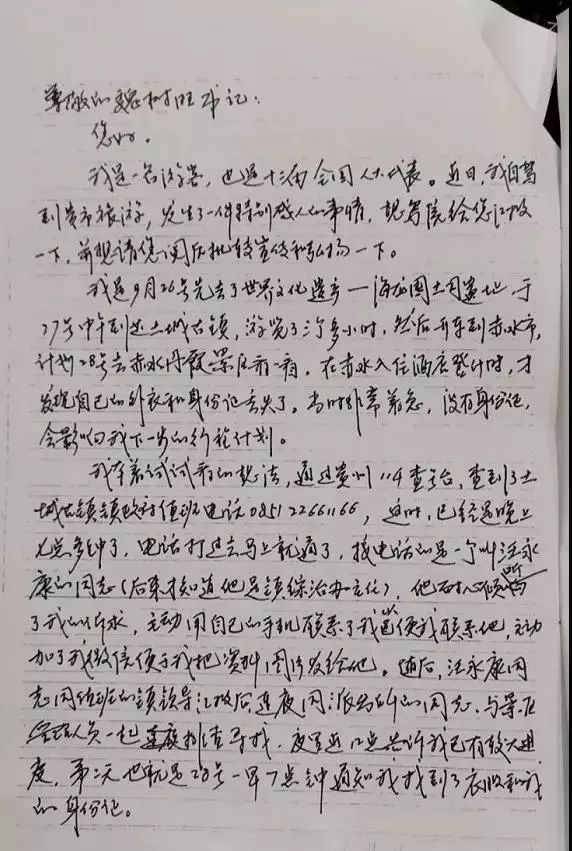 尊敬的魏树旺书记：
您好。
我是一名游客，也是十三届全国人大代表。近日，我自驾
到贵市旅游，发生了一件特别感人的事情，想写信给您汇报
一下，并想请您阅后批转宣传和弘扬一下。
我是9月26号先去了世界文化遗产—海龙囤土司遗址，于
27号中午到达土城古镇，游览了三个多小时，然后开车到赤水市，
计划28号去赤水丹霞景区看一看。在赤水入住酒店登记时，才
发现自己的外衣和身份证丢失了。当时非常着急，没有身份证，
会影响我下一步的行程计划。
我本着试试看的想法，通过贵州114查号台，查到了土
城古镇镇政府值班电话0851 22661166，这时，已经是晚上
七点多钟了，电话打过去马上就通了，接电话的是一个叫汪永
康的同志（后来才知道他是镇综治办主任），他耐心倾听
了我的诉求，主动用自己的手机联系了我以便我联系他，主动
加了我微信便于我把资料图片发给他。随后，汪永康同
志同值班的镇领导汇报后连夜同派出所的同志、与景区
管理人员一起连夜排查寻找，夜里近12点告诉我已有较大进
度，第二天也就是28号一早7点钟通知我找到了衣服和我
的身份证。